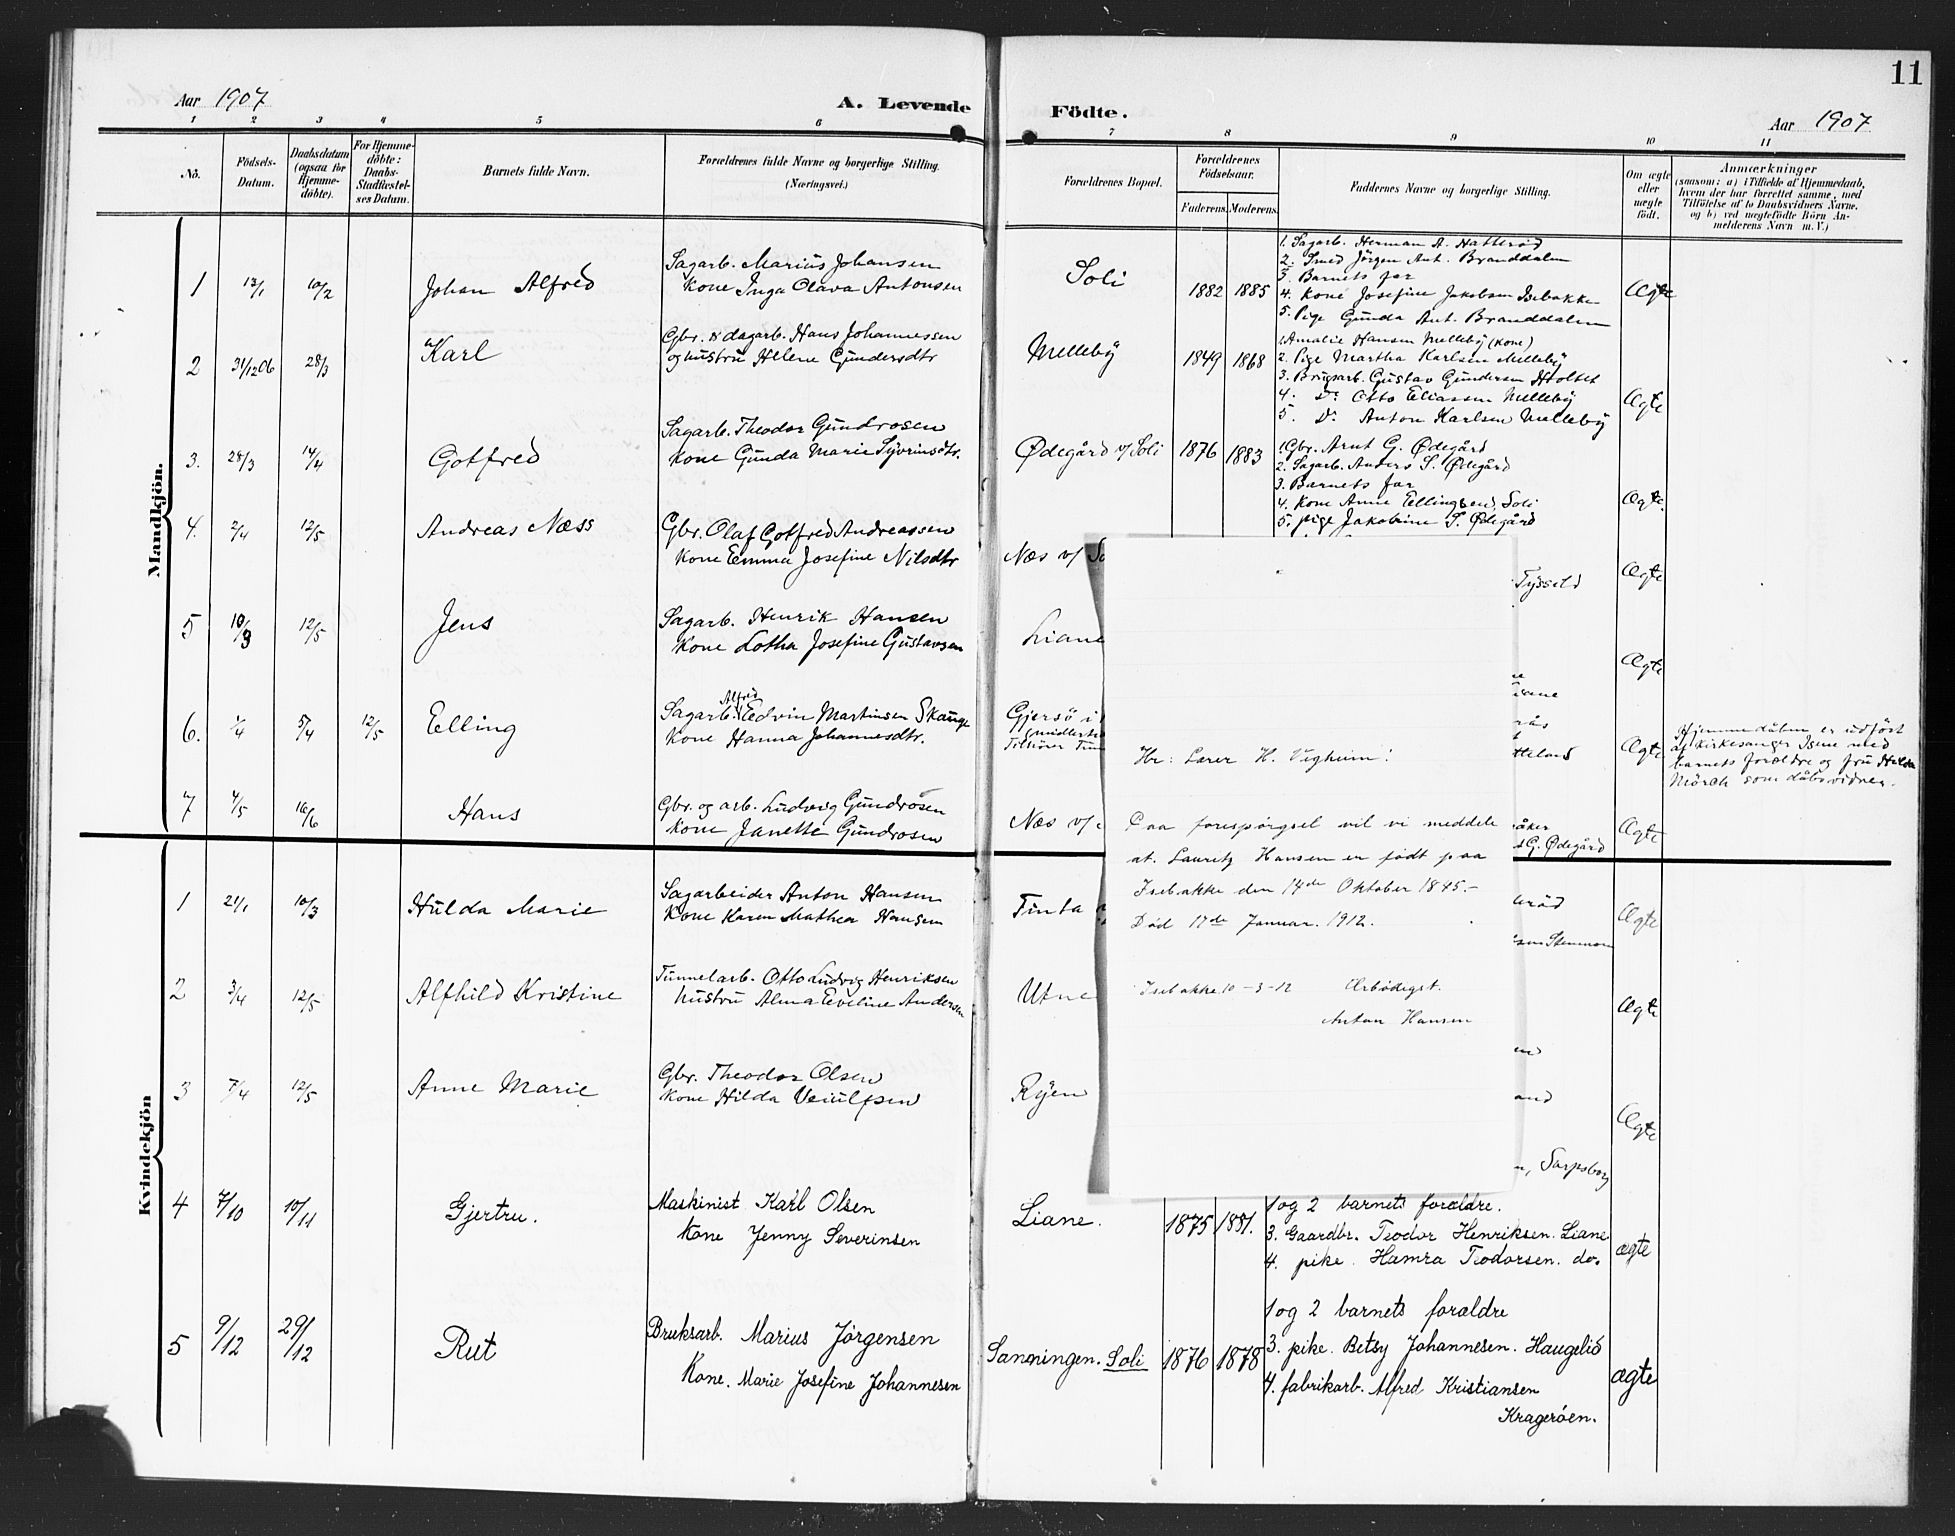 11
Aar 1907
A. Levende Födte.
Aar 1907
1 2 3 4 5 6 7 8 9 10 11
No.
Födsels-
Datum.
Daabsdatum
(ogsaa for
Hjemme-
döbte).
For Hjemme-
döbte:
Daabs-
Stadfæstel-
ses Datum.
Barnets fulde Navn.
Forældrenes fulde Navne og borgerlige Stilling.
(Næringsvei.)
Forældrenes Bopæl.
Forældrenes
Födselsaar.
Faderens. Moderens.
Faddernes Navne og borgerlige Stilling.
Om ægte
eller
uægte
födt.
Anmærkninger
(saasom: a) i Tilfælde af Hjemmedaab,
hvem der har forrettet samme, med
Tilföielse af to Daabsvidners Navne.
og b) ved uægtefödte Börn An-
melderens Navn m. V.)
Mandkjön.
1 13/1 10/2 Johan Alfred
Sagarb. Marius Johansen
Kone Inga Olava Antonsen
Soli
1882 1885
1. Sagarb. Herman A. Hatteröd
2. Smed Jörgen Ant. Branddalen
3. Barnets far
4. Kone Josefine Jakobsen Isebakke
5. Pige Gunda Ant. Branddalen
Ægte
2 31/12 06 28/3 Karl
Gbr. & dagarb. Hans Johannessen
og hustru Helene Gundersdtr
Melleby
1849 1868
1. Amalie Hansen Melleby (Kone)
2. Pige Martha Karlsen Melleby
3. Brugsarb. Gustav Gundersen Holtet
4. Do Otto Eliassen Melleby
5. Do Anton Karlsen Melleby
Ægte
3. 28/3 14/4 Gotfred
Sagarb. Theodor Gundrosen
Kone Gunda Marie Syvrinsdtr.
Ødegård v/ Soli
1876 1883
1. Gbr. Arnt G. Ødegård
2. Sagarb. Anders S. Ødegård
3. Barnets far
4. Kone Anne Ellingsen, Soli
5. pige Jakobine S. Ødegård
Ægte.
4. 2/4 12/5 Andreas Næss
Gbr. Olaf Gotfred Andreassen
Kone Emma Josefine Nilsdtr
Næs v/ So
Tysseld
Ægte
5 10/3 12/5 Jens
Sagarb. Henrik Hansen
Kone Lotha Josefine Gustavsen
Liane
Ægte
6. 1/4 5/4 12/5 Elling
Alfred
Sagarb. Edvin Martinsen Skauge
Kone Hanna Johannesdtr.
Gjersö i
Tilhörer
Ægte
Hjemmedåben er udfört
af kirkesanger Isene med
barnets forældre og fru Hilda
Mörch som dåbsvidner.
7 4/5 16/6 Hans
Gbr. og arb. Ludvig Gundrosen
Kone Janette Gundrosen
Næs v/
G. Ødegård
Ægte
Kvindekjön
1 21/1 10/3 Hulda Marie
Sagarbeider Anton Hansen
Kone Karen Mathea Hansen
Tinta
Ægte
2 3/4 12/5 Alfhild Kristine
Tunnelarb. Otto Ludvig Henriksen
hustru Alma Eveline Andersen
Utne
Ægte
3 7/4 12/5 Anne Marie
Gbr. Theodor Olsen
Kone Hilda Veiulfsen
Ryen
Sarpsborg
Ægte
4 7/10 10/11 Gjertru.
Maskinist Karl Olsen
Kone Jenny Severinsen
Liane.
1875 1881.
1 og 2 barnets forældre.
3. Gaardbr. Teodor Henriksen. Liane
4. pike. Hamra Teodorsen. do.
ægte
5 9/12 29/12 Rut
Bruksarb. Marius Jörgensen
Kone. Marie Josefine Johannesen
Sanningen. Soli
1876 1878
1 og 2 barnets forældre
3. pike. Betsy Johannesen. Haugelid
4. fabrikarb. Alfred Kristiansen
Kragerøen.
ægte
Hr: Lærer H. Vigheim!
Paa forespørgsel vil vi meddele
at. Lauritz Hansen er født paa
Isebakke den 14de Oktober 1845.-
Død 17de Januar. 1912.
Isebakke 10-3-12 Ærbødigst.
Anton Hansen